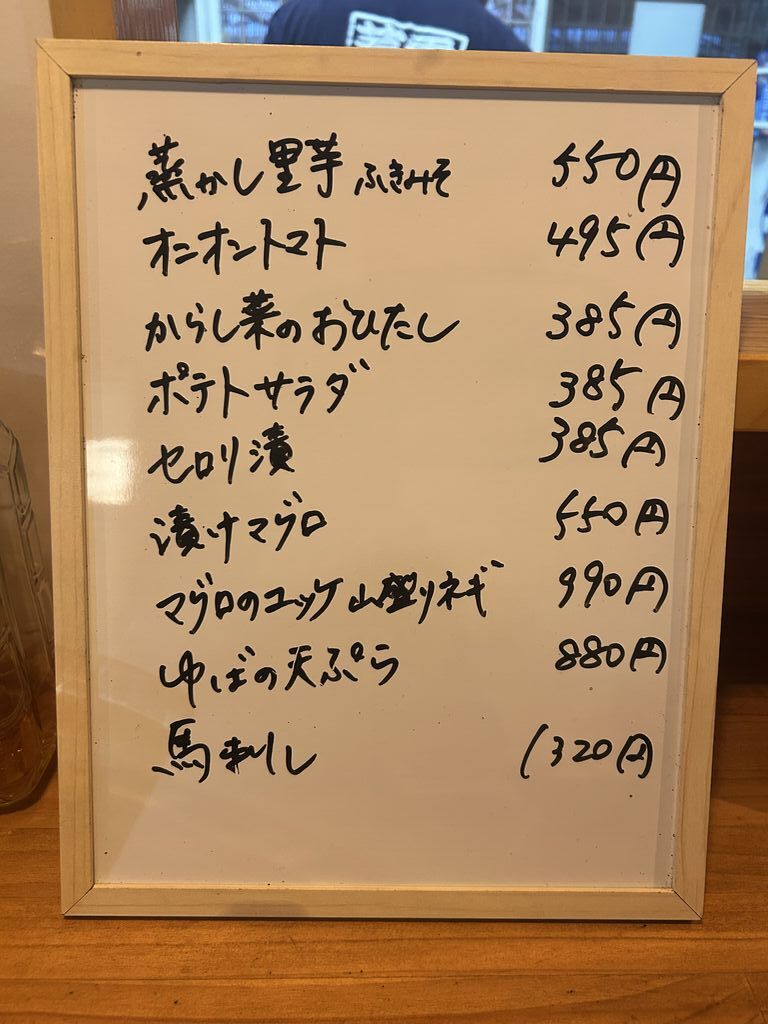 蒸かし里芋 ふきみそ 550円
オニオントマト 495円
からし菜のおひたし 385円
ポテトサラダ 385円
セロリ漬 385円
漬けマグロ 550円
マグロのユッケ 山盛りネギ 990円
ゆばの天ぷら 880円
馬刺し 1320円